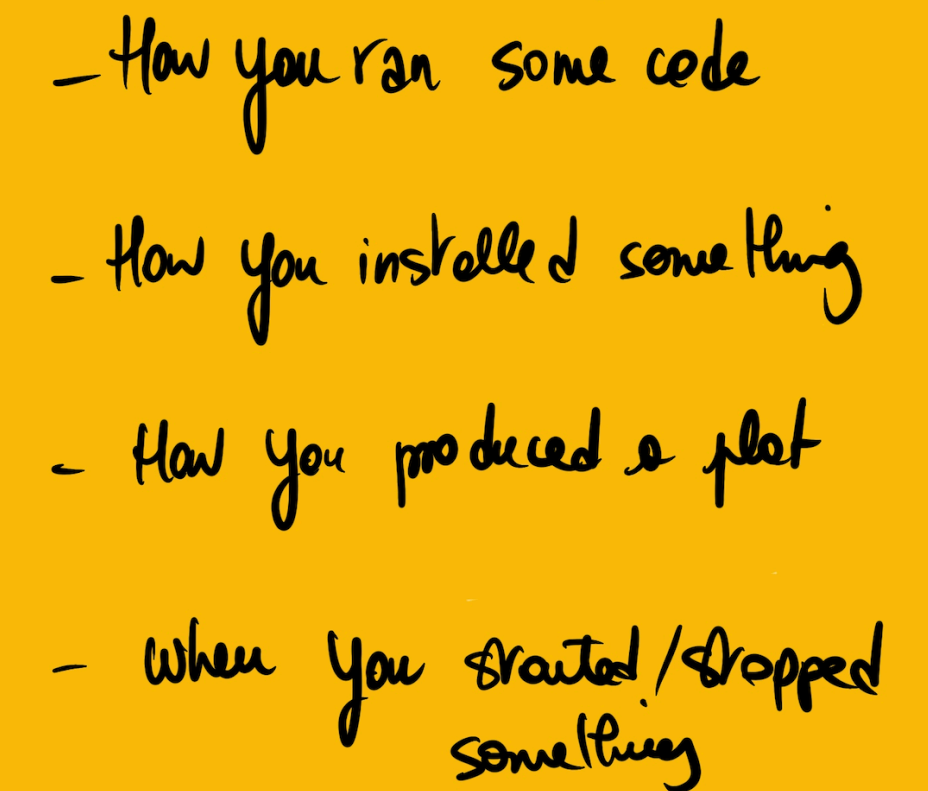 - How you ran some code
- How you installed something
- How you produced a plot
- When you started/stopped
something